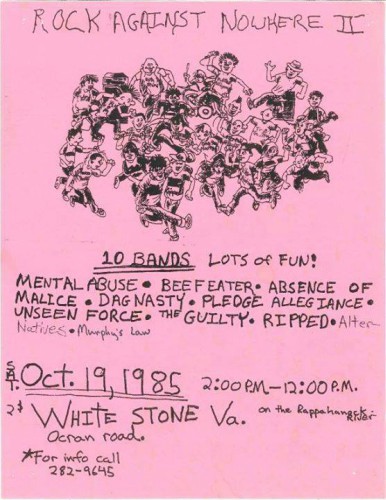 ROCK AGAINST NOWHERE II
10 BANDS LOTS OF FUN!
MENTAL ABUSE • BEEFEATER • ABSENCE OF
MALICE • DAG NASTY • PLEDGE ALLEGIANCE •
UNSEEN FORCE • THE GUILTY • RIPPED • Alter-
Natives • Murphy's Law
SAT. Oct. 19, 1985 2:00 PM - 12:00 P.M.
2$ WHITE STONE Va. on the Rappahannock River
Ocran road.
*For info call
282-9645